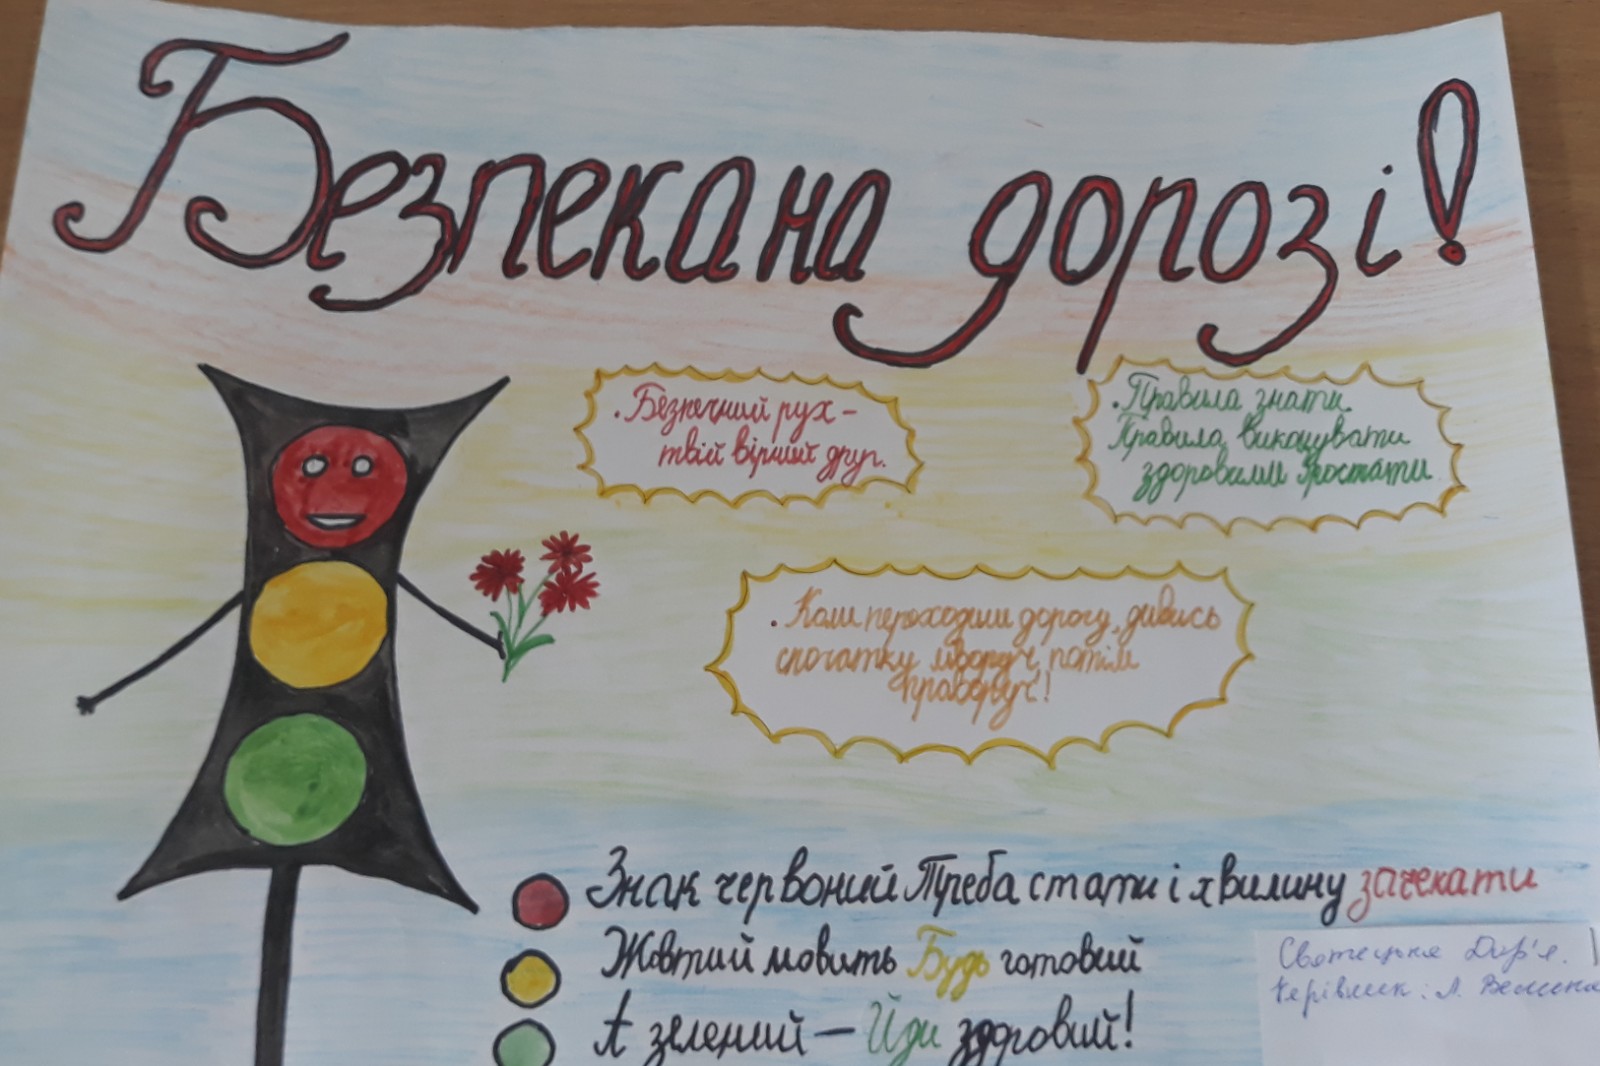 Безпека на дорозі!
. Безпечний рух -
твій вірний друг.
. Правила знати
Правила виконувати
здоровими зростати
. Коли переходиш дорогу, дивись
спочатку ліворуч, потім
праворуч!
Знак червоний Треба стати і хвилину зачекати
Жовтий мовить Будь готовий
А зелений — Йди здоровий!
Дар'я.
Керівник: Л.